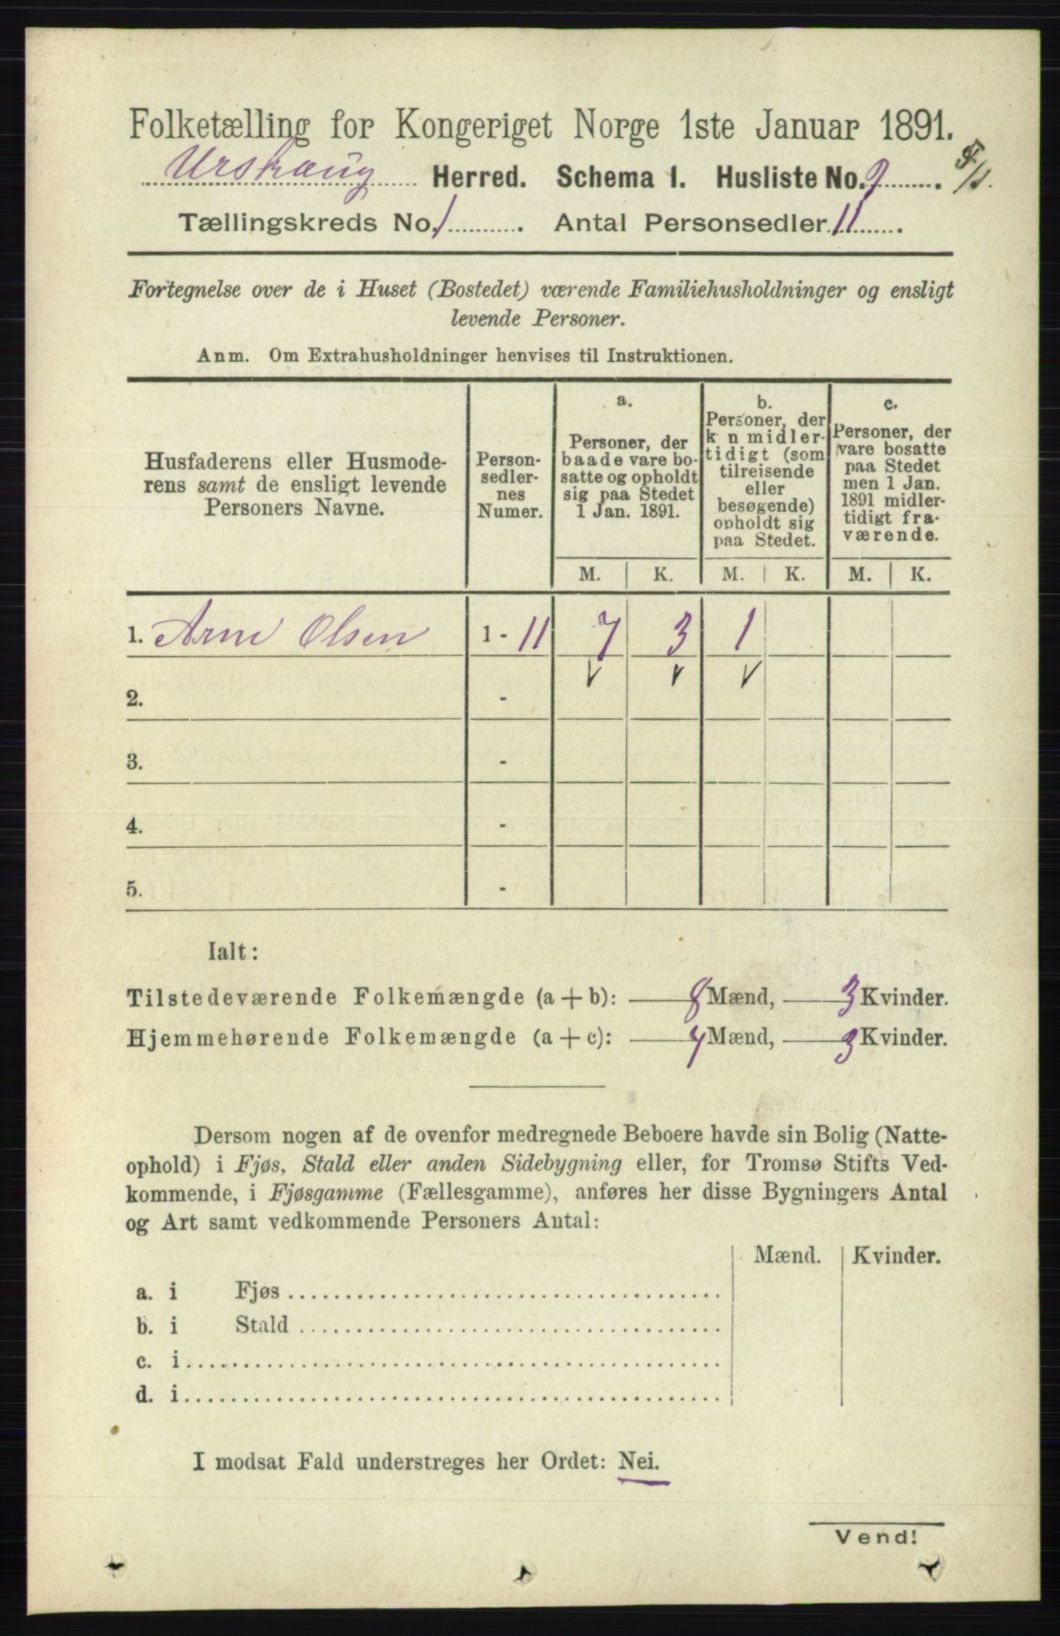 Folketælling for Kongeriget Norge 1ste Januar 1891.
Urskaug Herred. Schema 1. Husliste No. 9
Tællingskreds No. 1. Antal Personsedler 11.
Fortegnelse over de i Huset (Bostedet) værende Familiehusholdninger og ensligt
levende Personer.
Anm. Om Extrahusholdninger henvises til Instruktionen.
Husfaderens eller Husmode-
rens samt de ensligt levende
Personers Navne.
Person-
sedler-
nes
Numer.
a.
Personer, der
baade vare bo-
satte og opholdt
sig paa Stedet
1 Jan. 1891.
b.
Personer, der
k n midler-
tidigt (som
tilreisende
eller
besøgende)
opholdt sig
paa Stedet.
c.
Personer, der
vare bosatte
paa Stedet
men 1 Jan.
1891 midler-
tidigt fra-
værende.
M. K. M. K. M. K.
1. Arne Olsen 1 - 11 7 3 1
2. -
3. -
4. -
5. -
Ialt:
Tilstedeværende Folkemængde (a + b): 8 Mænd, 3 Kvinder.
Hjemmehørende Folkemængde (a + c): 7 Mænd, 3 Kvinder.
Dersom nogen af de ovenfor medregnede Beboere havde sin Bolig (Natte-
ophold) i Fjøs, Stald eller anden Sidebygning eller, for Tromsø Stifts Ved-
kommende, i Fjøsgamme (Fællesgamme), anføres her disse Bygningers Antal
og Art samt vedkommende Personers Antal:
Mænd. Kvinder.
a. i Fjøs
b. i Stald
c. i
d. i
I modsat Fald understreges her Ordet: Nei.
Vend!